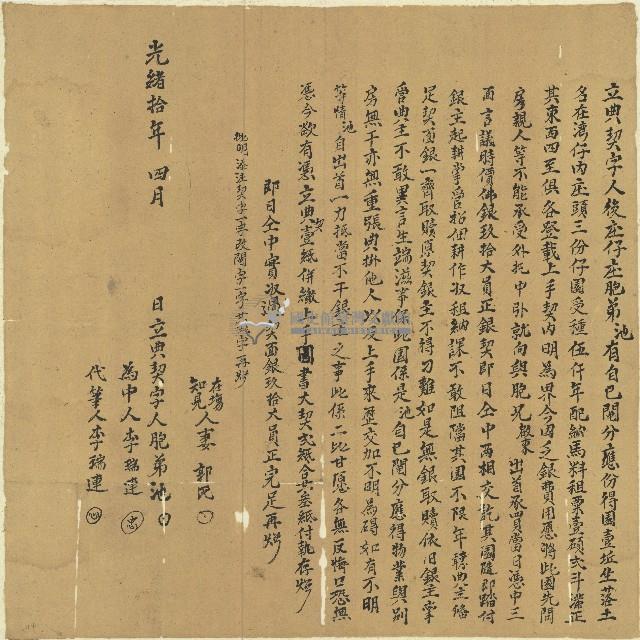 立典契字人後庄仔庄胞弟池有自己鬮分應份得園壹坵坐落土
名在湾仔內庄頭三份仔園受種伍仟年配納馬料租粟壹碩弍斗滿正
其東西四至俱各登載上手契內明為界今因乏銀費用愿將此園先問
房親人等不能承受外托中引就向與胞兄啟東出首承買當日憑中三
面言議時價佛銀玖拾大員正銀契即日仝中兩相交訖其園隨即踏付
銀主起耕掌管招佃耕作收租納課不敢阻擋其園不限年轉典主備
足契面銀一齊取贖原契銀主不得刁難如是無銀取贖依旧銀主掌
管典主不敢異言生端滋事保此園係是池自己鬮分應得物業與別
房無干亦無重張典掛他人以及上手來歷交加不明為碍如有不明
等情池自出首一力抵當不干銀主之事此係二比甘愿各無反悔口恐無
憑今欲有憑立典契壹紙併繳上手鬮書大契弍紙合共叁紙付執存炤
即日仝中實收過契面銀玖拾大員正完足再炤
批明添注契字一字改鬮字一字共弍字再炤
在塲
知見人妻郭氏
為中人李瑞蓮 忠
代筆人李瑞蓮 忠
光緒拾年四月 日立典契字人胞弟池
國史館臺灣文獻館
TAIWAN HISTORICA